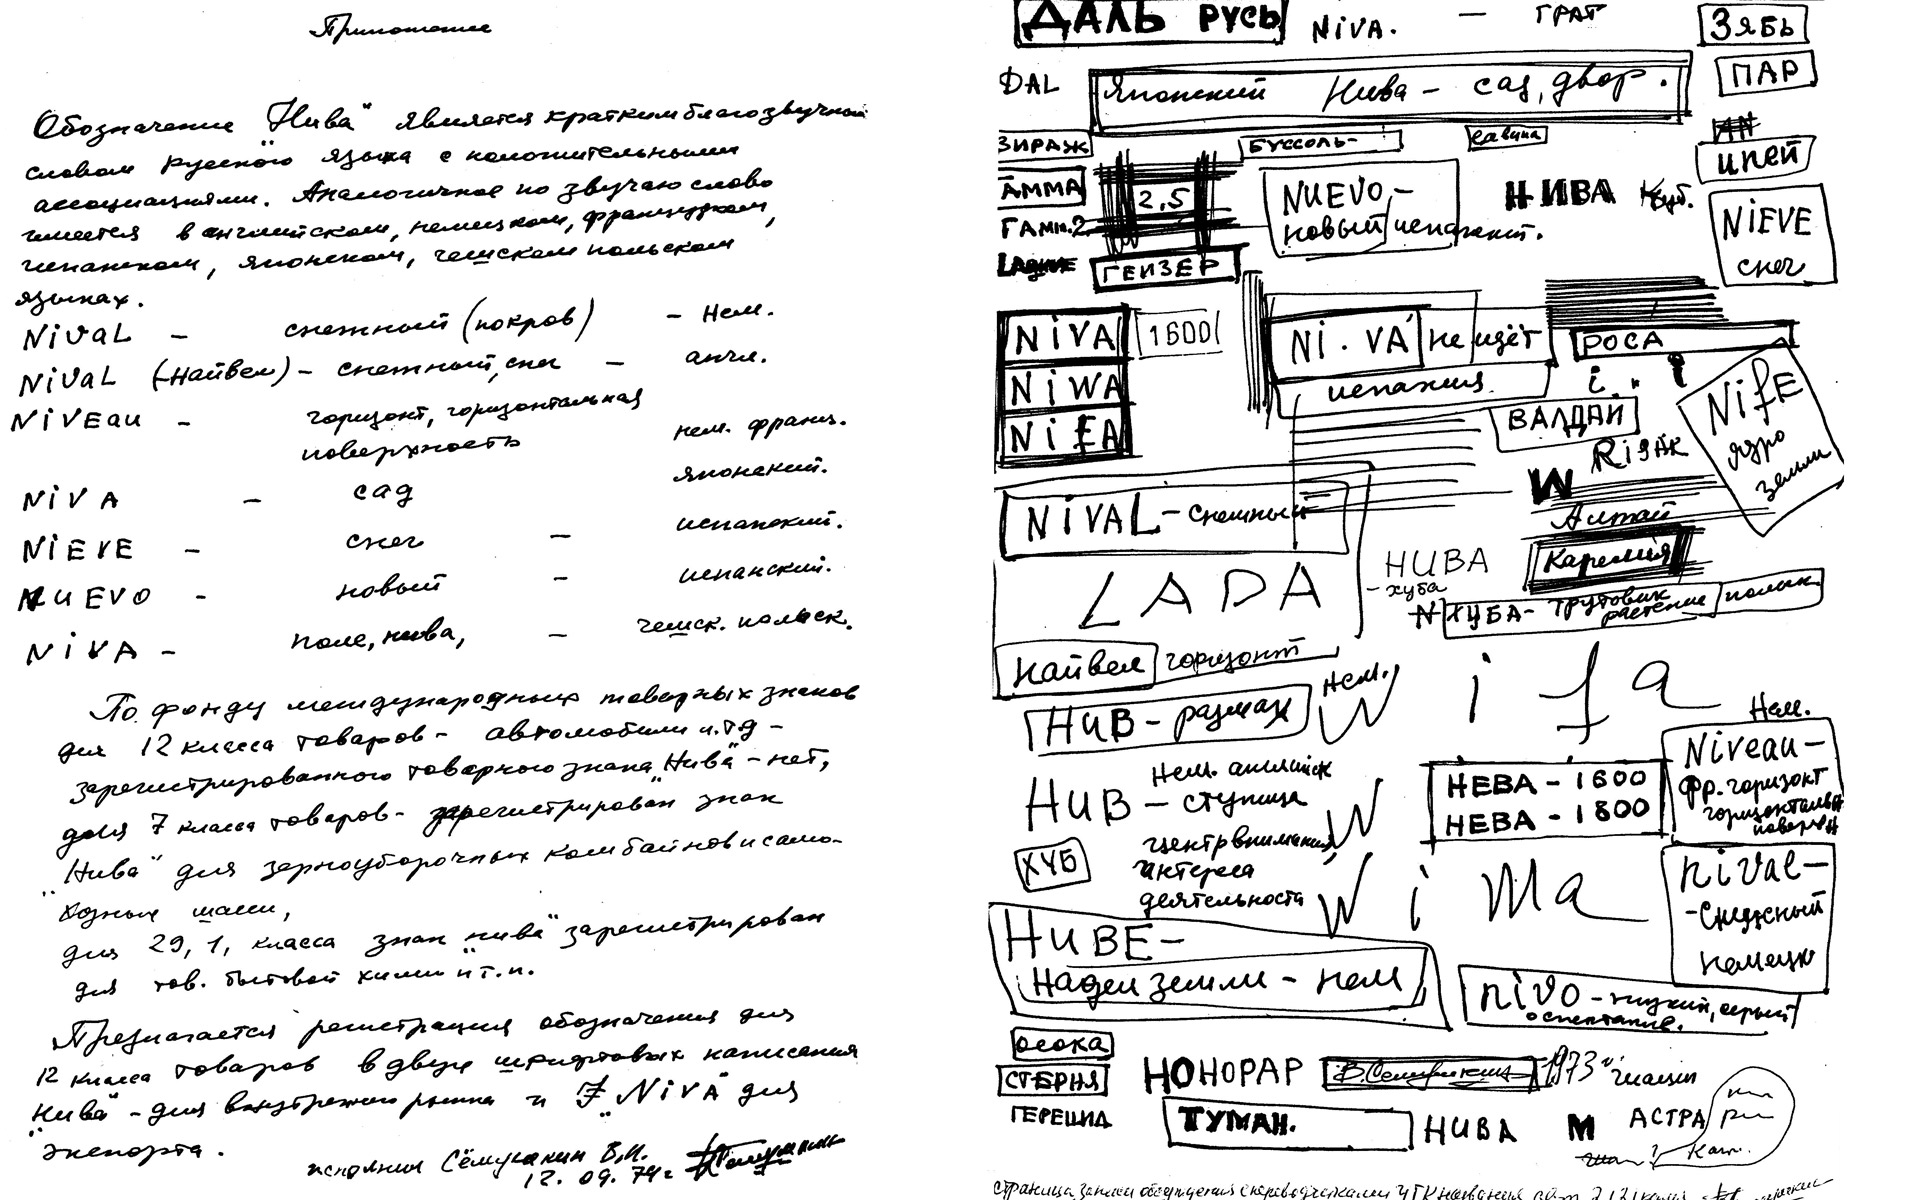 Приложение
Обозначение "Нива" является кратким благозвучным
словом русского языка с положительными
ассоциациями. Аналогичное по звучаю слово
имеется в английском, немецком, французском,
испанском, японском, чешском польском
языках.
NiVaL - снежный (покров) - Нем.
NiVaL (-Найвел) - снежный, снег - англ.
NiVEau - горизонт, горизонтальная
поверхность нем. франц.
японский.
NiVA - сад
NiEVE - снег - испанский.
NUEVO - новый - испанский.
NiVA - поле, нива, - чешск. польск.
По фонду международных товарных знаков
для 12 класса товаров - автомобили и.тд -
зарегистрированного товарного знака "Нива" - нет,
для 7 класса товаров - зарегистрирован знак
"Нива" для зерноуборочных комбайнов и само-
ходных шасси,
для 29, 1, класса знак "нива" зарегистрирован
для тов. бытовой химии и т.п.
Предлагается регистрация обозначения для
12 класса товаров в двух шрифтовых написания
"Нива" - для внутреннего рынка и "NiVA" для
экспорта.
исполнил Сёмушкин В.И.
12. 09. 74г
ДАЛЬ РУСЬ NiVA. — ГРАТ ЗЯБЬ
DAL Японский Нива - сад, двор. ПАР
ЗИРАЖ БУССОЛЬ- савина иней
АММА 2,5 NUEVO - НИВА Куб. NiEVE
ГАММ.2 новый испанский. снег
ГЕЙЗЕР
NiVA 1600 Ni.VA' не идёт РОСА
NiWA испания. i i NifE
NiFA ВАЛДАЙ ядро
земли
W
NiVAL - снежный Алтай
НИВА Карелия
LADA - хуба
N ХУБА - трутовик растение
Найвел горизонт
нем. W i f a
НИВ - размах Нем.
Нем. английск Niveau -
НИВ - ступица W НЕВА - 1600 фр. горизонт
НЕВА - 1800 горизонтальн
поверхн
центр внимания,
ХУБ интереса W i Ma niVal -
деятельности - снежный
НИВЕ - немецк
Надел земли - нем niVo - низкий, серый
осока
СТЕРНЯ НОНОРАР В.Семушкин 1973
ГЕРЕЦИД ТУМАН. НИВА М АСТРА